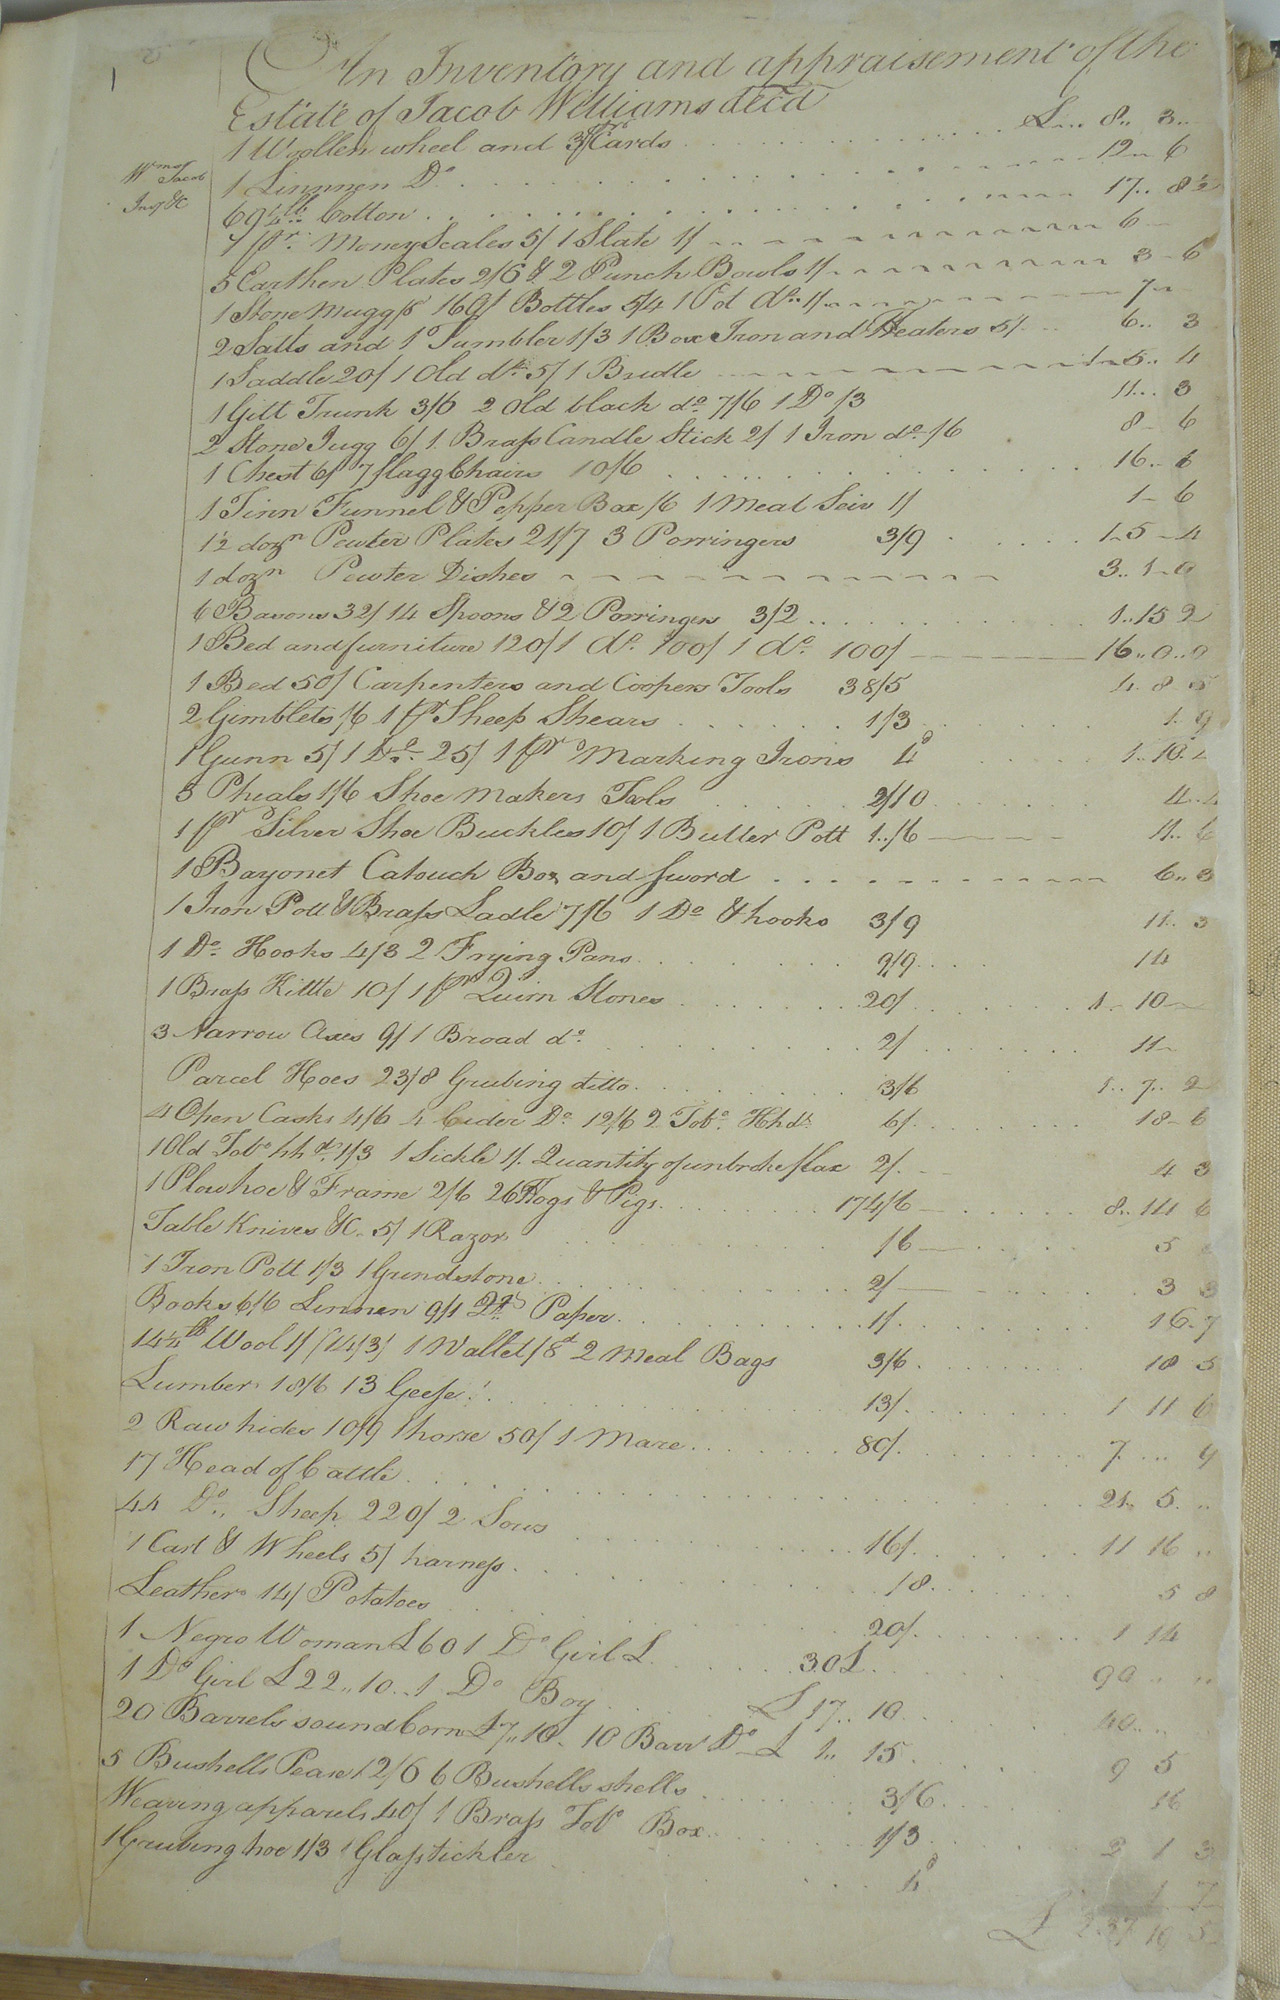 An Inventory and appraisement of the
Estate of Jacob Williams decd
1 Woollen wheel and 3 pr Cards £ .. 8 .. 3 ..
Wms Jacob
Invy &c
1 Linnnen Do 12 .. 6
69 1/4 lb Cotton 17 .. 8 1/2
1 pr Money Scales 5/ 1 Slate 1/ 6 -
5 Earthen Plates 2/6 & 2 Punch Bowls 1/ 3 - 6
1 Stone Mugg /8 16 Qt Bottles 5/4 1 Pot do 1/ 7 ..
2 Salts and 1 Tumbler 1/3 1 Box Iron and Heaters 5/ 6 .. 3
1 Saddle 20/ 1 Old do 5/ 1 Bridle 1 - 5 .. 4
1 Gilt Trunk 3/6 2 Old black do 7/6 1 Do /3 11 .. 3
2 Stone Jugg 6/ 1 Brass Candle Stick 2/ 1 Iron do /6 8 - 6
1 Chest 6/ 7 flagg Chairs 10/6 16 .. 6
1 Tinn Funnel & Pepper Box /6 1 Meal Seiv 1/ 1 - 6
1 1/2 dozn Pewter Plates 21/7 3 Porringers 3/9 1 - 5 - 4
1 dozn Pewter Dishes 3 .. 1 - 0
6 Basons 32/ 14 Spoons & 2 Porringers 3/2 1 .. 15 2
1 Bed and furniture 120/ 1 do 100/ 1 do 100/ 16 .. 0 .. 0
1 Bed 50/ Carpenters and Coopers Tools 38/5 4 .. 8 .. 5
2 Gimblets /6 1 pr Sheep Shears 1/3 1 .. 9
1 Gunn 5/ 1 Do 25/ 1 pr Marking Irons 4d 1 .. 10 .. 4
3 Phials 1/6 Shoe makers Tools 2/10 4 .. 4
1 pr Silver Shoe Buckles 10/ 1 Butter Pott 1 .. /6 11 .. 6
1 Bayonet Catouch Box and sword 6 .. 3
1 Iron Pott & Brass Ladle 7/6 1 Do & hooks 3/9 11 .. 3
1 Do Hooks 4/3 2 Frying Pans 9/9 14
1 Brass Kittle 10/ 1 pr Quirn Stones 20/ 1 .. 10 -
3 Narrow Axes 9/ 1 Broad do 2/ 11 -
Parcel Hoes 23/8 Grubing ditto 3/6 1 .. 7 .. 2
4 Open Casks 4/6 4 Cider Do 12/6 2 Tobo Hhds 6/ 18 - 6
1 Old Tobo hhd 1/3 1 Sickle 1/ Quantity of unbroke flax 2/ 4 3
1 Plow hoe & Frame 2/6 26 Hogs & Pigs 174/6 8 .. 14 6
Table Knives &c 5/ 1 Razor /6 5
1 Iron Pott 1/3 1 Grindstone 2/ 3 3
Books 6/6 Linnen 9/1 2 qrs Paper 1/ 16 - 7
14 1/4 lb Wool 1/ (14/3) 1 Wallet /8d 2 Meal Bags 3/6 18 5
Lumber 18/6 13 Geese 13/ 1 11 6
2 Raw hides 10/9 1 horse 50/ 1 Mare 80/ 7 .. .. 9
17 Head of Cattle 21 .. 5 ..
44 Do Sheep 220/ 2 Sows 16/ 11 16 ..
1 Cart & Wheels 5/ harness /8 5 8
Leather 14/ Potatoes 20/ 1 14
1 Negro Woman £60 1 Do Girl £ 30£ 90 .. ..
1 Do Girl £22 .. 10 .. 1 Do Boy £17 .. 10 40 ..
20 Barrels sound Corn £7 .. 10 - 10 Barr Do £ 1 .. 15 9 5
5 Bushells Pease 12/6 6 Bushells shells 3/6 16
Wearing apparels 40/ 1 Brass Tobo Box 1/3 2 1 3
1 Grubing hoe 1/3 1 Glass tickler 4d 1 7
£ 237 16 5